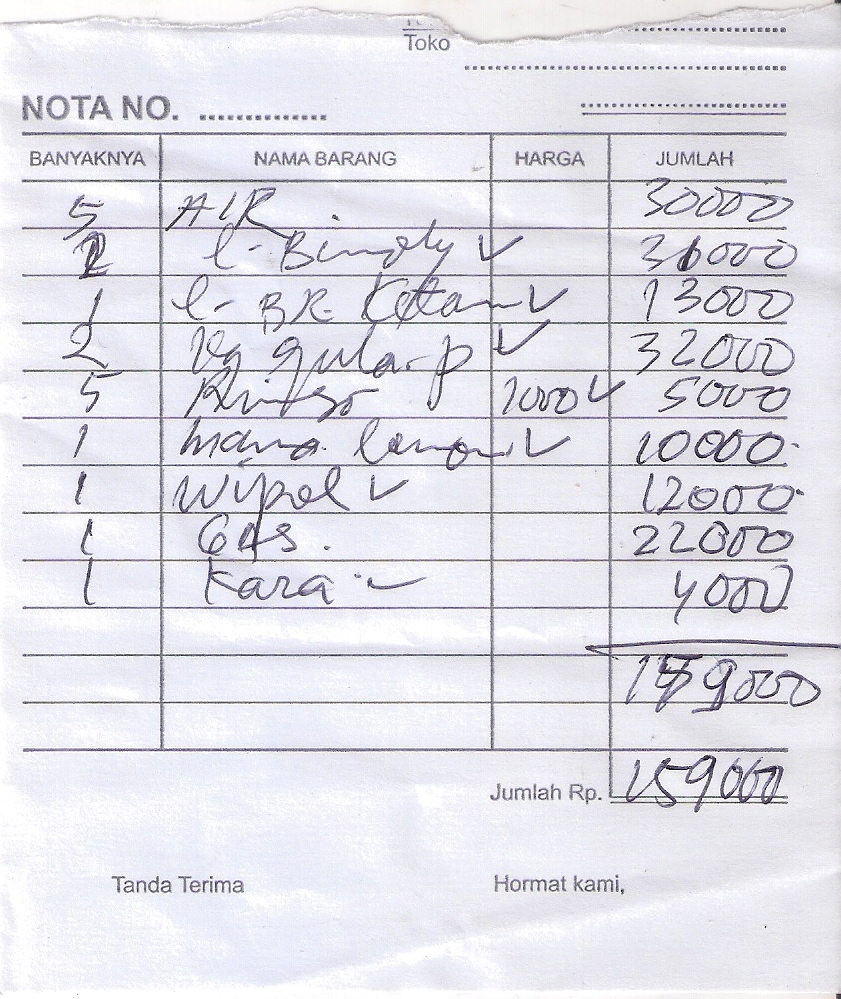 Toko
NOTA NO. ..............
BANYAKNYA NAMA BARANG HARGA JUMLAH
5 AIR 30000
2 l- Bimoly ✓ 31000
1 l- BR Ketan ✓ 13000
2 Kg gula-p ✓ 32000
5 Rinso 1000 ✓ 5000
1 mama lemon ✓ 10000
1 Wipol ✓ 12000
1 GAS. 22000
1 Kara ✓ 4000
159000
Jumlah Rp. 159000
Tanda Terima Hormat kami,